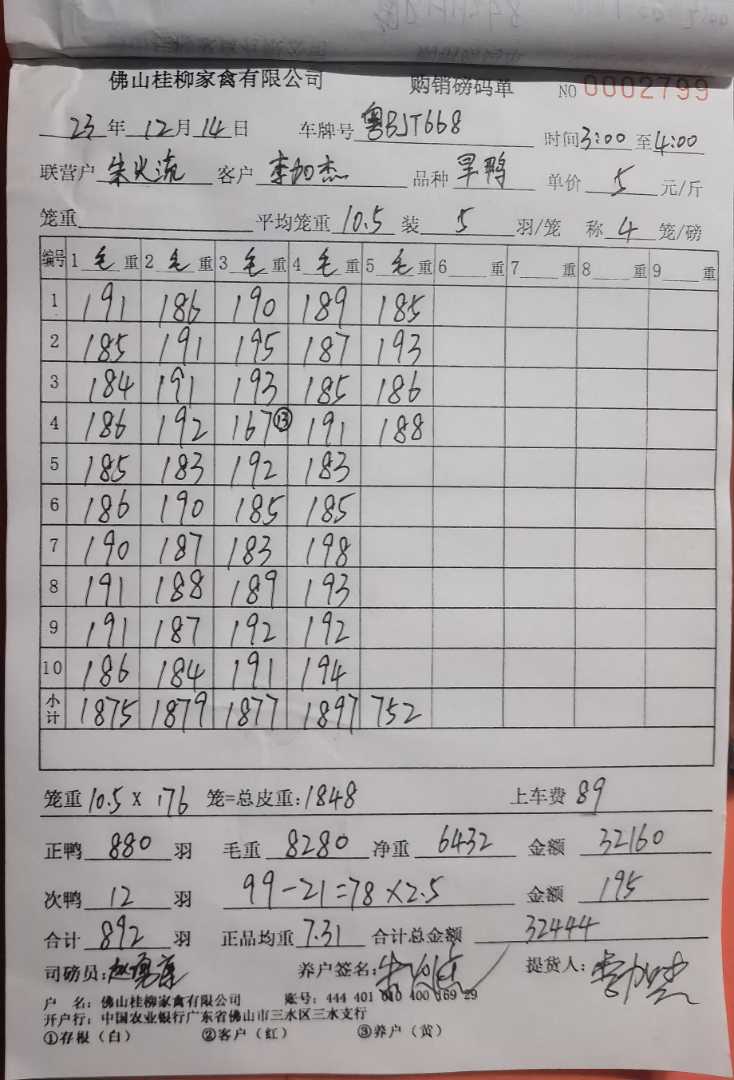 佛山桂柳家禽有限公司 购销磅码单 NO 0002799
23年12月14日 车牌号 粤BJT668 时间3:00至4:00
联营户 客户 李加杰 品种 旱鸭 单价 5 元/斤
笼重 平均笼重 10.5 装 5 羽/笼 称 4 笼/磅
编号 1 毛 重 2 毛 重 3 毛 重 4 毛 重 5 毛 重 6 重 7 重 8 重 9 重
1 191 186 190 189 185
2 185 191 195 187 193
3 184 191 193 185 186
4 186 192 167⑬ 191 188
5 185 183 192 183
6 186 190 185 185
7 190 187 183 198
8 191 188 189 193
9 191 187 192 192
10 186 184 191 194
小计 1875 1879 1877 1897 752
笼重 10.5 X 176 笼=总皮重:1848 上车费 89
正鸭 880 羽 毛重 8280 净重 6432 金额 32160
次鸭 12 羽 99-21=78×2.5 金额 195
合计 892 羽 正品均重 7.31 合计总金额 32444
司磅员: 养户签名: 提货人: 李加杰
户 名: 佛山桂柳家禽有限公司 账号: 444 401 010 400 169 29
开户行: 中国农业银行广东省佛山市三水区三水支行
①存根(白) ②客户(红) ③养户(黄)